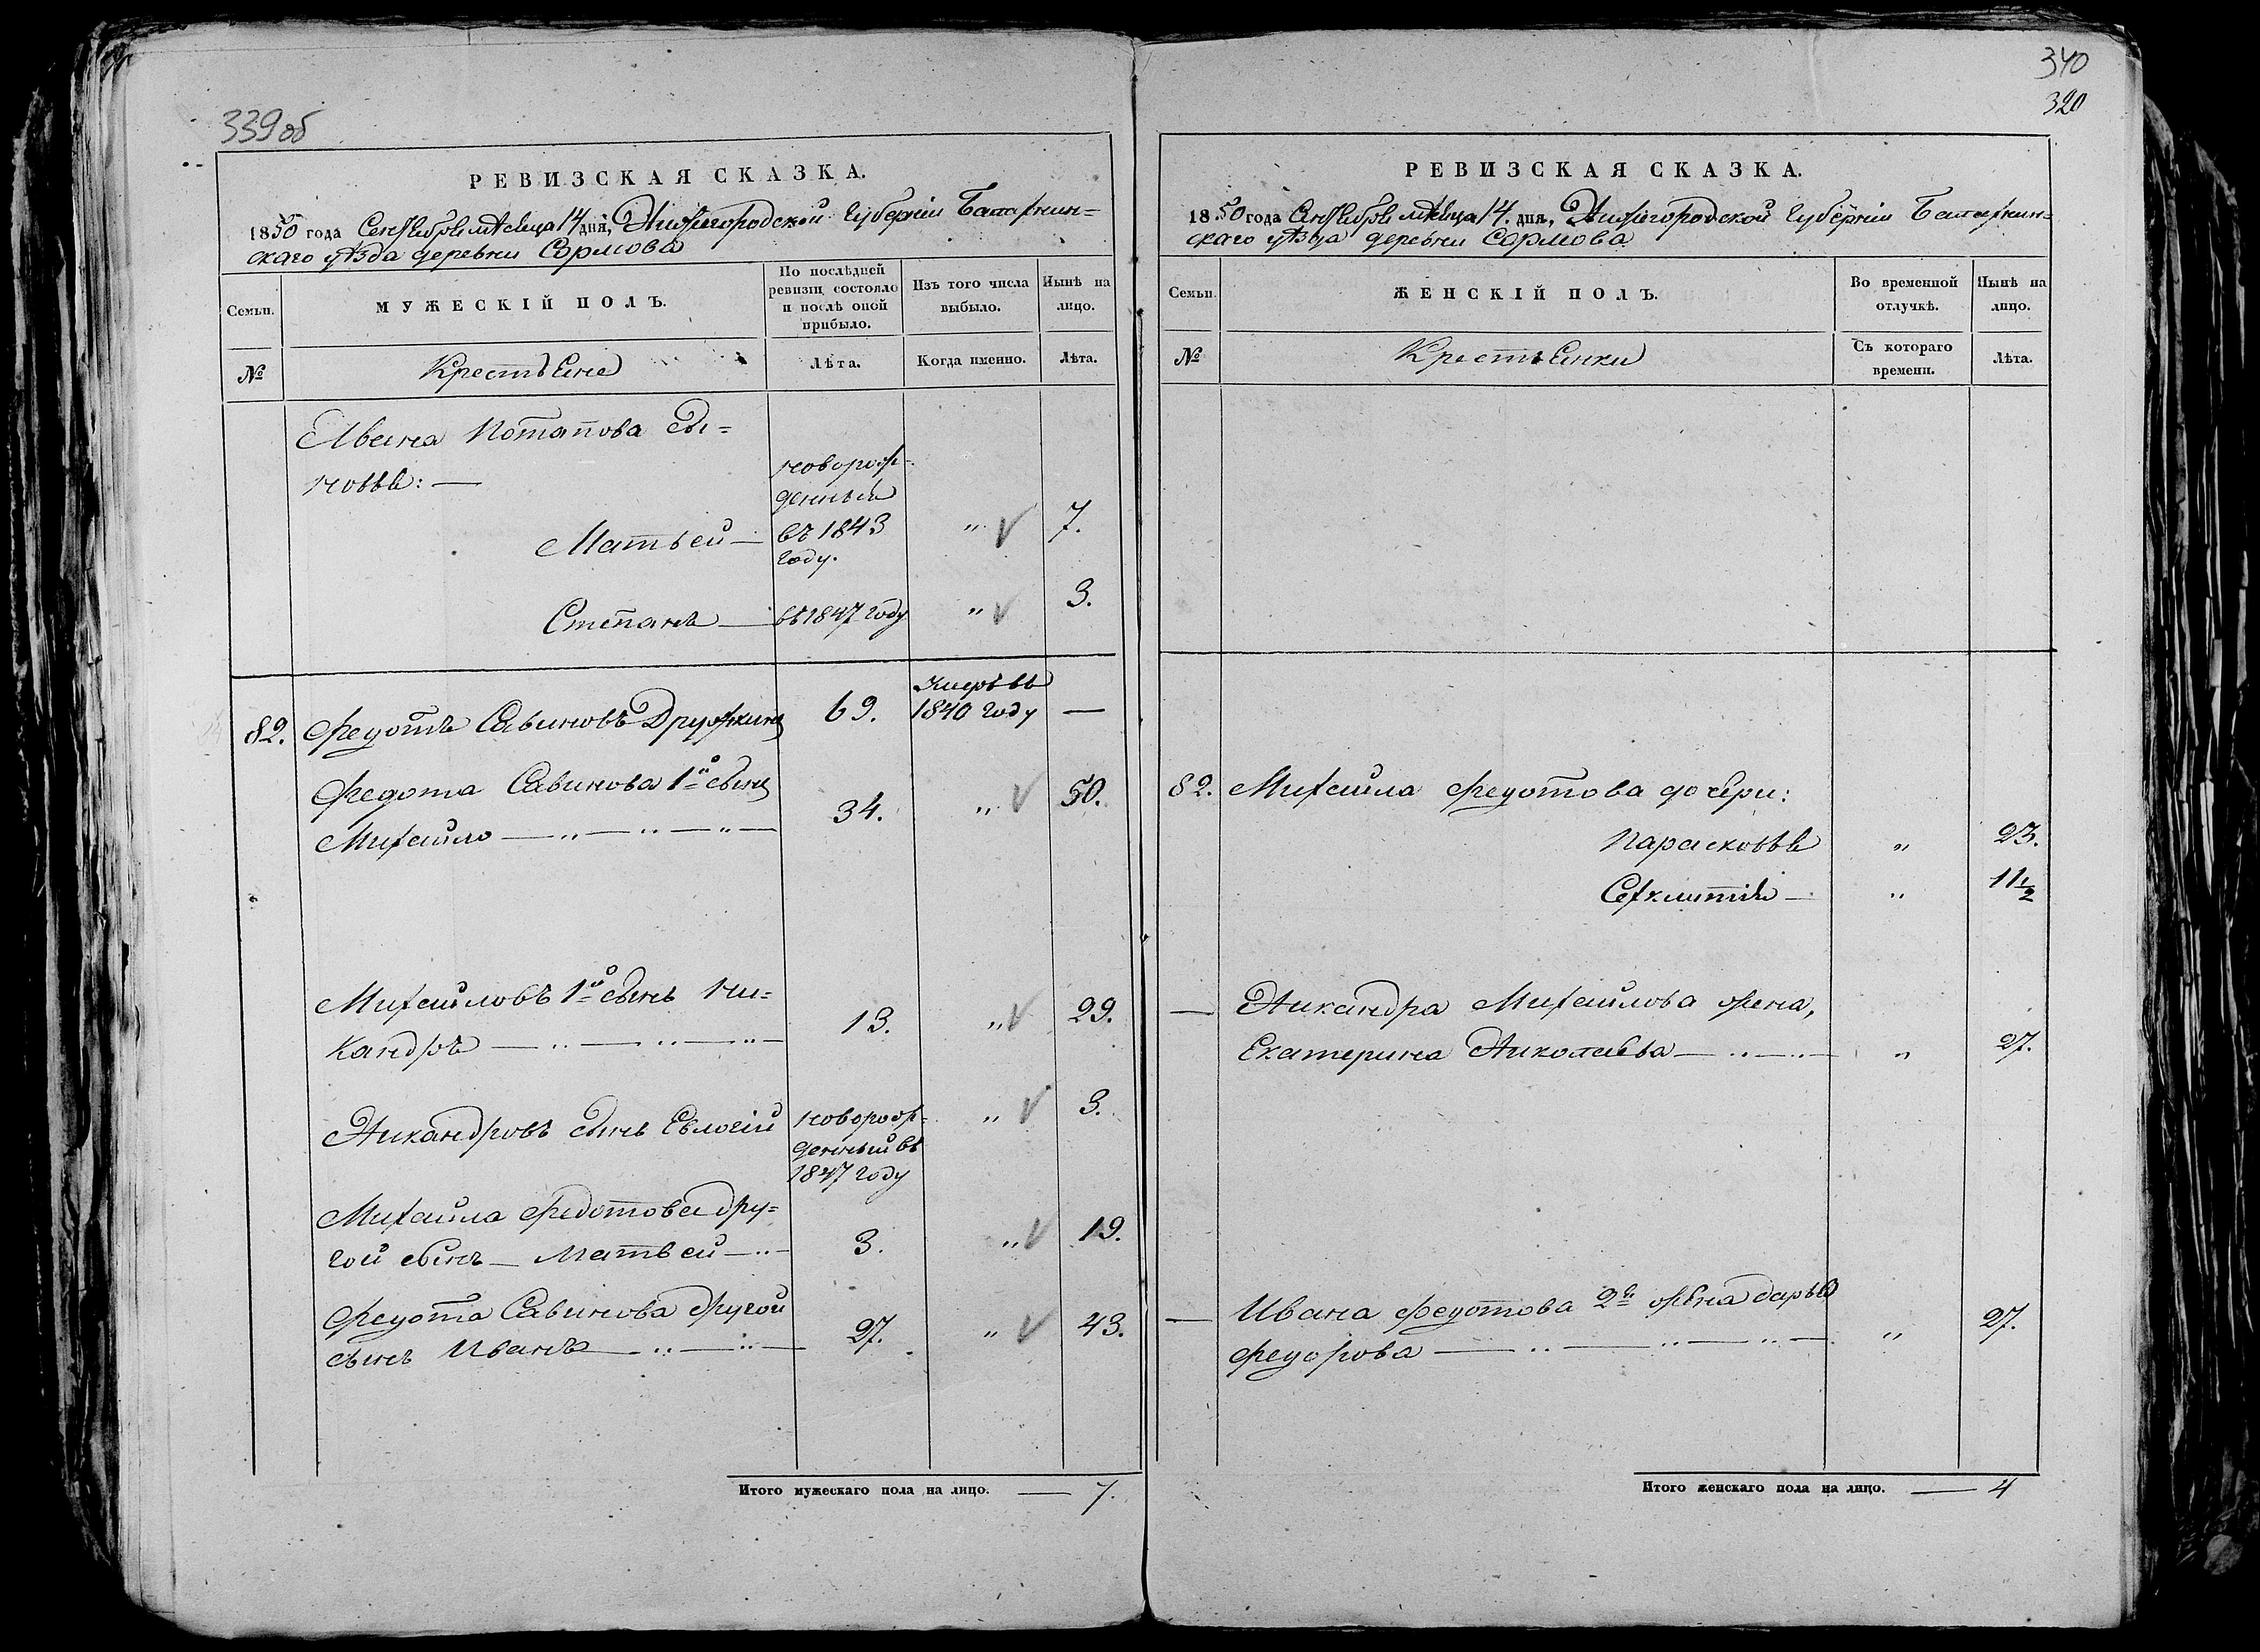 339об
РЕВИЗСКАЯ СКАЗКА.
1850 года Сентября месяца 14 дня, Нижегородской Губернии Балахнин=
скаго уѣзда деревни Сормова
Семьи.
МУЖЕСКІЙ ПОЛЪ.
По послѣдней
ревизіи состояло
и послѣ оной
прибыло.
Изъ того числа
выбыло.
Нынѣ на
лицо.
№
Крестьяне
Лѣта.
Когда именно.
Лѣта.
Ивана Потапова сы=
новья: —
новорож-
денный
Матвей — въ 1843 " 7.
году.
Степанъ — въ 1847 году " 3.
82. Федотъ Савиновъ Дружкинъ 69. умеръ въ
1840 году —
Федота Савинова 1й сынъ
Михайло — " — " — " — 34. " 50.
Михайловъ 1й сынъ Ни=
кандръ — " — " — " — 13. " 29.
Никандровъ сынъ Евлогій новорож= " 3.
денный въ
1847 году
Михайла Федотова дру=
гой сынъ — Матвей — " — 3. " 19.
Федота Савинова другой
сынъ Иванъ — " — " — 27. " 43.
Итого мужескаго пола на лицо. — 7.
340
320
РЕВИЗСКАЯ СКАЗКА.
1850 года Сентября месяца 14. дня, Нижегородской Губерніи Балахнин=
скаго уѣзда деревни Сормова
Семьи.
ЖЕНСКІЙ ПОЛЪ.
Во временной
отлучкѣ.
Нынѣ на
лицо.
№
Крестьянки
Съ котораго
времени.
Лѣта.
82. Михайла Федотова дочери:
Парасковья " 23.
" 11½
— Никандра Михайлова жена,
Екатерина Николаева — " — " — " 27.
— Ивана Федотова 2я жена Дарья
Федорова — " — " — " — " 27.
Итого женскаго пола на лицо. — 4